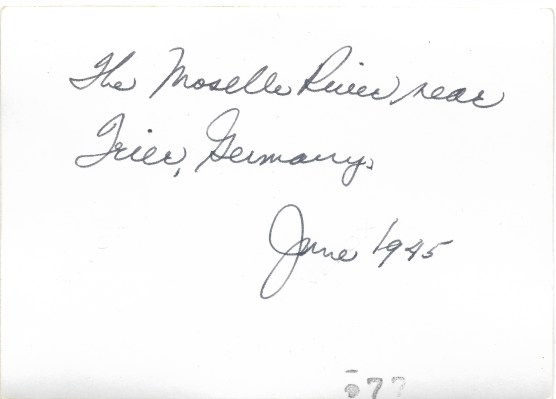 The Moselle River near
Trier, Germany.
June 1945
77